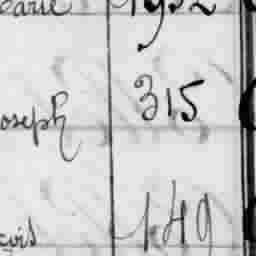 arie 1952
oseph 315
149